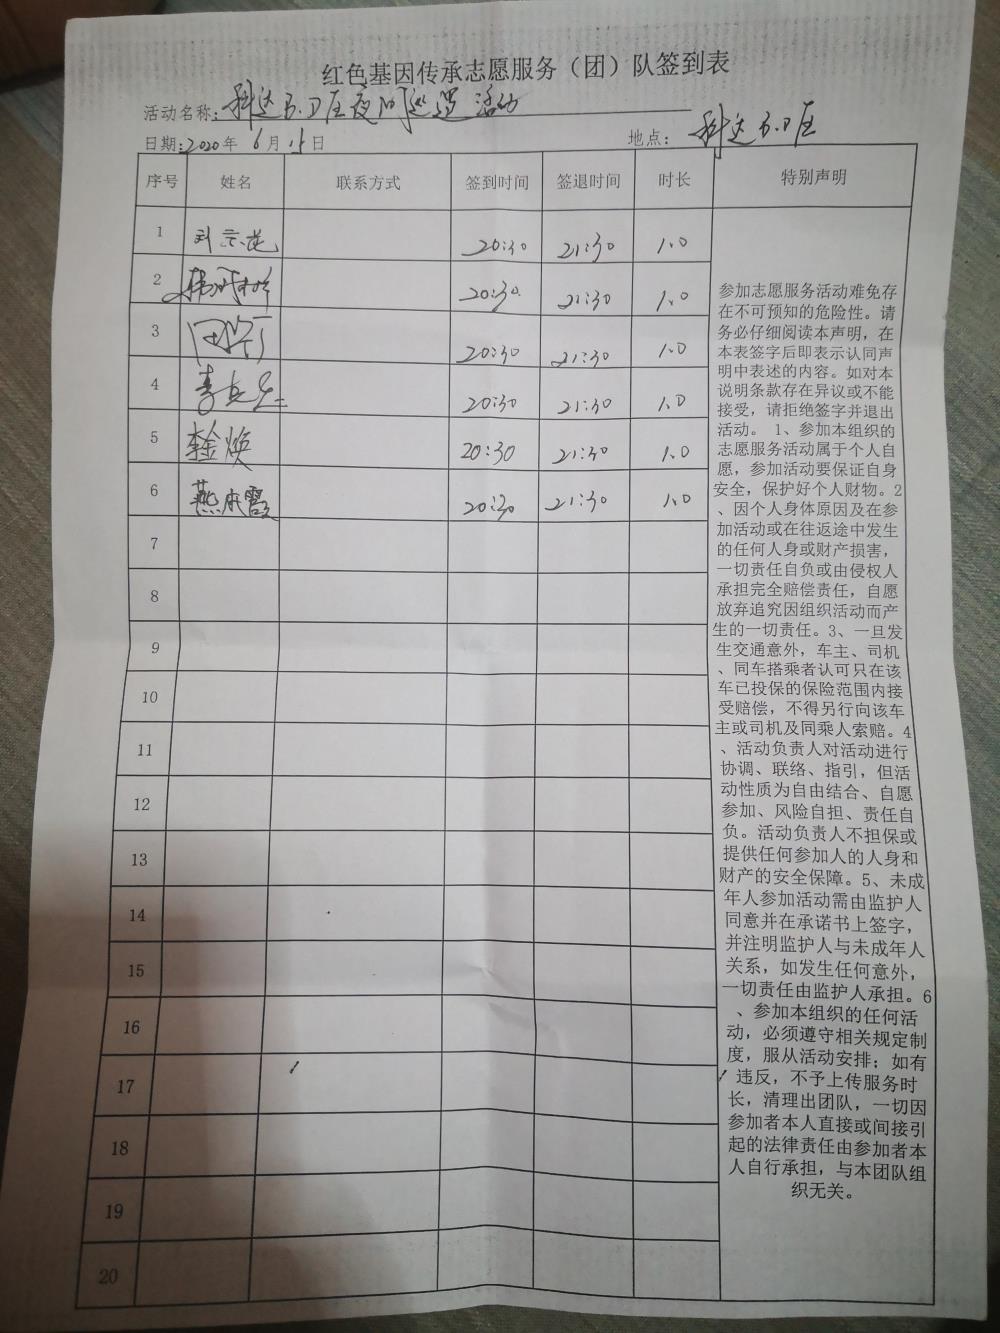 红色基因传承志愿服务（团）队签到表
活动名称：科达B.D区夜间巡逻活动
日期：2020年6月15日 地点：科达B.D区
序号 姓名 联系方式 签到时间 签退时间 时长 特别声明
1 刘 20:30 21:30 1.0
2 20:30 21:30 1.0
3 20:30 21:30 1.0
4 李 20:30 21:30 1.0
5 李金焕 20:30 21:30 1.0
6 燕 霞 20:30 21:30 1.0
7
8
9
10
11
12
13
14
15
16
17
18
19
20
参加志愿服务活动难免存
在不可预知的危险性。请
务必仔细阅读本声明，在
本表签字后即表示认同声
明中表述的内容。如对本
说明条款存在异议或不能
接受，请拒绝签字并退出
活动。 1、参加本组织的
志愿服务活动属于个人自
愿，参加活动要保证自身
安全，保护好个人财物。2
、因个人身体原因及在参
加活动或在往返途中发生
的任何人身或财产损害，
一切责任自负或由侵权人
承担完全赔偿责任，自愿
放弃追究因组织活动而产
生的一切责任。3、一旦发
生交通意外，车主、司机
、同车搭乘者认可只在该
车已投保的保险范围内接
受赔偿，不得另行向该车
主或司机及同乘人索赔。4
、活动负责人对活动进行
协调、联络、指引，但活
动性质为自由结合、自愿
参加、风险自担、责任自
负。活动负责人不担保或
提供任何参加人的人身和
财产的安全保障。5、未成
年人参加活动需由监护人
同意并在承诺书上签字，
并注明监护人与未成年人
关系，如发生任何意外，
一切责任由监护人承担。6
、参加本组织的任何活
动，必须遵守相关规定制
度，服从活动安排；如有
违反，不予上传服务时
长，清理出团队，一切因
参加者本人直接或间接引
起的法律责任由参加者本
人自行承担，与本团队组
织无关。